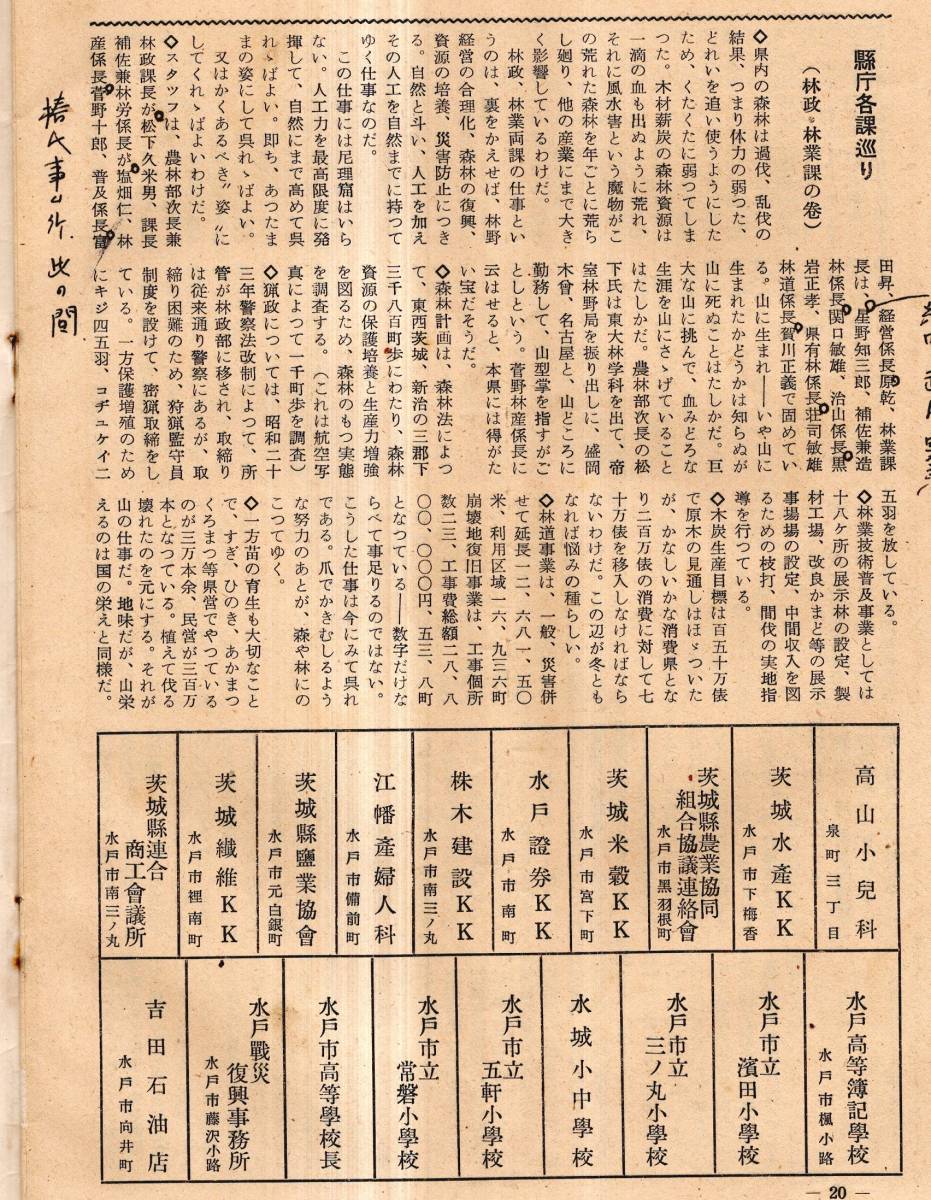 縣庁各課巡り
(林政・林業課の卷)
◇県内の森林は過伐、乱伐の
結果、つまり体力の弱つた、
どれいを追い使うようにした
ため、くたくたに弱つてしま
つた。木材薪炭の森林資源は
一滴の血も出ぬように荒れ、
それに風水害という魔物がこ
の荒れた森林を年ごとに荒ら
し廻り、他の産業にまで大き
く影響しているわけだ。
林政、林業両課の仕事とい
うのは、裏をかえせば、林野
経営の合理化、森林の復興、
資源の培養、災害防止につき
る。自然と斗い、人工を加え
その人工を自然までに持つて
ゆく仕事なのだ。
この仕事には屁理窟はいら
ない。人工力を最高限度に発
揮して、自然にまで高めて呉
れゝばよい。即ち、あつたま
まの姿にして呉れゝばよい。
又はかくあるべき〝姿〟に
してくれゝばよいわけだ。
◇スタツフは、農林部次長兼
林政課長が松下久米男、課長
補佐兼林労係長が塩畑仁、林
産係長菅野十郎、普及係長富
田昇、経営係長原乾、林業課
長は、星野知三郎、補佐兼造
林係長関口敏雄、治山係長黒
岩正孝、県有林係長荘司敏雄
林道係長賀川正義で固めてい
る。山に生まれ――いや山に
生まれたかどうかは知らぬが
山に死ぬことはたしかだ。巨
大な山に挑んで、血みどろな
生涯を山にさゝげていること
はたしかだ。農林部次長の松
下氏は東大林学科を出て、帝
室林野局を振り出しに、盛岡
木曾、名古屋と、山どころに
勤務して、山型掌を指すがご
としという。菅野林産係長に
云はせると、本県には得がた
い宝だそうだ。
◇森林計画は 森林法によつ
て、東西茨城、新治の三郡下
三千八百町歩にわたり、森林
資源の保護培養と生産力増強
を図るため、森林のもつ実態
を調査する。(これは航空写
真によつて一千町歩を調査)
◇猟政については、昭和二十
三年警察法改制によつて、所
管が林政部に移され、取締り
は従来通り警察にあるが、取
締り困難のため、狩猟監守員
制度を設けて、密猟取締をし
ている。一方保護増殖のため
にキジ四五羽、コヂユケイ二
五羽を放している。
◇林業技術普及事業としては
十八ケ所の展示林の設定、製
材工場、改良かまど等の展示
事場場の設定、中間収入を図
るための枝打、間伐の実地指
導を行つている。
◇木炭生産目標は百五十万俵
で原木の見通しはほゞついた
が、かなしいかな消費県とな
り二百万俵の消費に対して七
十万俵を移入しなければなら
ないわけだ。この辺が冬とも
なれば悩みの種らしい。
◇林道事業は、一般、災害併
せて延長一二、六八一、五〇
米、利用区域一六、九三六町
崩壊地復旧事業は、工事個所
数二三、工事費総額二八、八
〇〇、〇〇〇円、五三、八町
となつている――数字だけな
らべて事足りるのではない。
こうした仕事は今にみて呉れ
である。爪でかきむしるよう
な努力のあとが、森や林にの
こつてゆく。
◇一方苗の育生も大切なこと
で、すぎ、ひのき、あかまつ
くろまつ等県営でやつている
のが三万本余、民営が三百万
本となつている。植えて伐る
壊れたのを元にする。それが
山の仕事だ。地味だが、山栄
えるのは国の栄えと同様だ。
高山小兒科
泉町三丁目
茨城水產KK
水戶市下梅香
茨城縣農業協同
組合協議連絡會
水戶市黑羽根町
茨城米穀KK
水戶市宮下町
水戶證券KK
水戶市南町
株木建設KK
水戶市南三ノ丸
江幡產婦人科
水戶市備前町
茨城縣鹽業協會
水戶市元白銀町
茨城纖維KK
水戶市裡南町
茨城縣連合
商工會議所
水戶市南三ノ丸
水戶高等簿記學校
水戶市楓小路
水戶市立
濱田小學校
水戶市立
三ノ丸小學校
水城小中學校
水戶市立
五軒小學校
水戶市立
常磐小學校
水戶市高等學校長
水戶戰災
復興事務所
水戶市藤沢小路
吉田石油店
水戶市向井町
― 20 ―